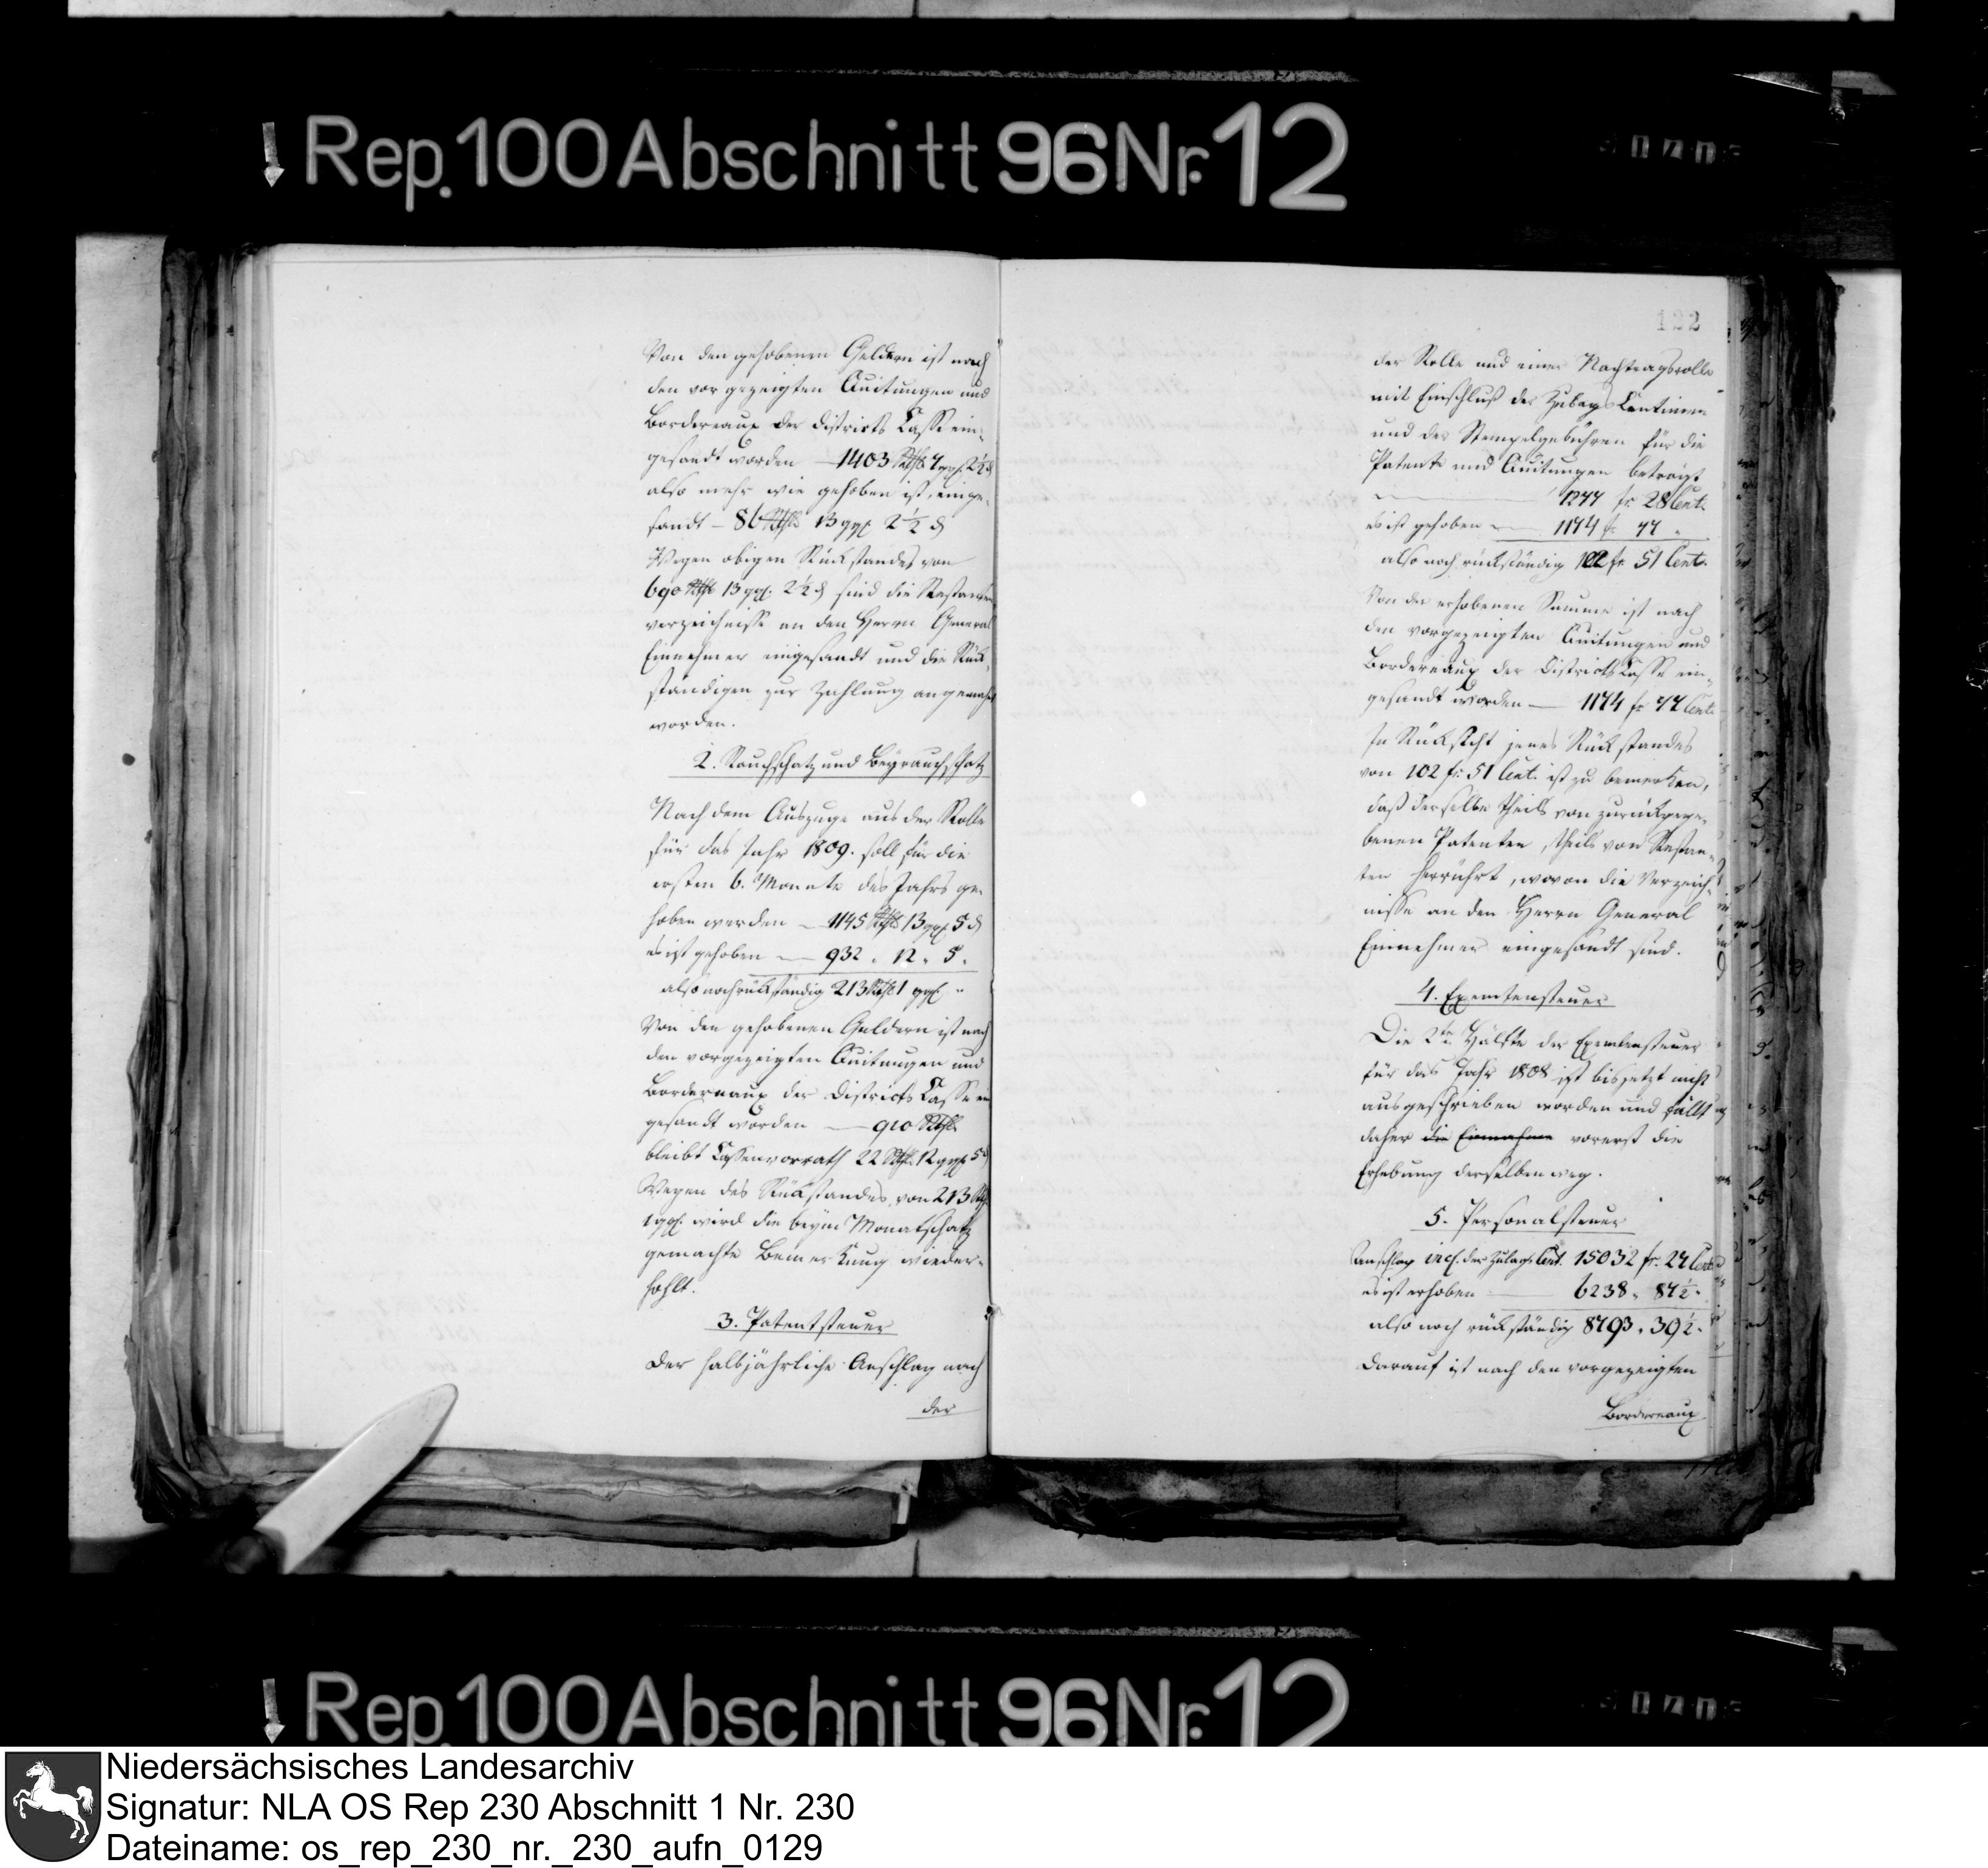 Rep. 100 Abschnitt 96 Nr. 12
Von den gehobenen Geldern ist nach
den vorgezeigten Quitungen und
Bordereaux der Districts Casse ein-
gesandt worden — 1403 Rthlr 4 ggl. 2½ ₰
also mehr wie gehoben ist, einge-
sandt — 86 Rthlr 13 ggl. 2½ ₰
Wegen obigen Rückstandes von
690 Rthlr 13 ggl. 2½ ₰ sind die Restanten
verzeichnisse an den Herrn General
Einnehmer eingesandt und die Rück-
ständigen zur Zahlung angemahnt
worden.
2. Rauchschatz und Beyrauchschatz
Nach dem Auszuge aus der Rolle
für das Jahr 1809. soll für die
ersten 6. Monate des Jahrs ge-
hoben werden — 1145 Rthlr 13 ggl. 5 ₰
es ist gehoben — 932 " 12 " 5 "
also noch rückständig 213 Rthlr 1 ggl. "
Von den gehobenen Geldern ist nach
den vorgezeigten Quitungen und
Bordereaux der Districts Casse ein
gesandt worden — 910 Rthlr
bleibt Cassenvorrath 22 Rthlr 12 ggl. 5 ₰
Wegen des Rückstandes von 213 Rthlr
1 ggl. wird die beym Monatschatz
gemachte Bemerkung wieder-
hohlt.
3. Patentsteuer
Der halbjährliche Anschlag nach
der
122
der Rolle und einer Nachtragsrolle
mit Einschluß der Zulags Centimen
und der Stempelgebühren für die
Patente und Quitungen beträgt
— 1277 fr. 28 Cent.
es ist gehoben — 1174 fr. 77 "
also noch rückständig 102 fr. 51 Cent.
Von der erhobenen Summe ist nach
den vorgezeigten Quitungen und
Bordereaux der Districts Casse ein-
gesandt worden — 1174 fr. 77 Cent.
In Rücksicht jenes Rückstandes
von 102 fr. 51 Cent. ist zu bemerken,
daß derselbe theils von zurückgege-
benen Patenten, theils von Restan-
ten herrührt, wovon die Verzeich-
nisse an den Herrn General
Einnehmer eingesandt sind.
4. Exemtensteuer
Die 2te Hälfte der Exemtensteuer
für das Jahr 1808 ist bis jetzt nicht
ausgeschrieben worden und fällt
daher die Einnahme vorerst die
Erhebung derselben weg.
5. Personalsteuer
Anschlag incl. der Zulags Cent. 15032 fr. 27 Cent.
es ist erhoben — 6238 " 87½ "
also noch rückständig 8793 " 39½ "
Darauf ist nach den vorgezeigten
Bordereaux
Rep. 100 Abschnitt 96 Nr. 12
Niedersächsisches Landesarchiv
Signatur: NLA OS Rep 230 Abschnitt 1 Nr. 230
Dateiname: os_rep_230_nr._230_aufn_0129